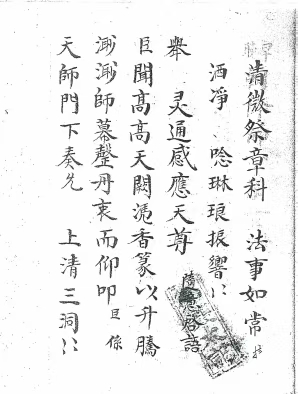 清微祭章科　法事如常
洒淨　唸琳琅振響〻
舉　灵通感應天尊
臣聞髙髙天闕凴香篆以升騰
渺渺師幕罄丹衷而仰叩　臣　係
天師門下奏先　上清三洞〻